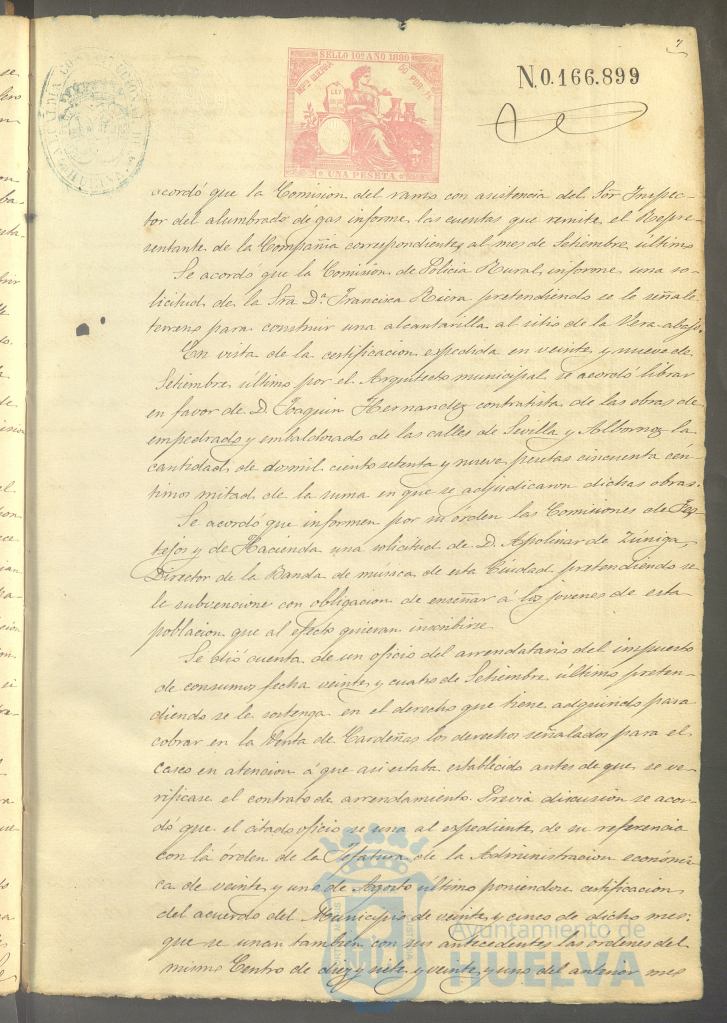 7
SELLO 10º AÑO 1880
IMPTO GUERRA 50 POR %
LEY
UNA PESETA
N.0.166.899
acordó que la Comision del ramo con asistencia del Sor Inspec-
tor del alumbrado de gas informe las cuentas que remite el Repre-
sentante de la Compañia correspondientes al mes de Setiembre último
Se acordo que la Comisión de Policia Rural informe una so-
licitud de la Sra Dª Francisca Riera pretendiendo se le señale
terreno para construir una alcantarilla al sitio de la Vera abajo.
En vista de la certificacion expedida en veinte y nueve de
Setiembre último por el Arquitecto municipal se acordó librar
en favor de D. Joaquin Hernandez contratista de las obras de
empedrado y embaldosado de las calles de Sevilla y Albornoz la
cantidad de dos mil ciento setenta y nueve pesetas cincuenta cen-
timos mitad de la suma en que se adjudicaron dichas obras.
Se acordó que informen por su órden las Comisiones de Fes-
tejos y de Hacienda una solicitud de D. Apolinar de Zúñiga,
Director de la Banda de música de esta Ciudad pretendiendo se
le subvencione con obligacion de enseñar á los jovenes de esta
poblacion que al efecto quieran inscribirse
Se dió cuenta de un oficio del arrendatario del impuesto
de consumos fecha veinte y cuatro de Setiembre último preten-
diendo se le sostenga en el derecho que tiene adquirido para
cobrar en la Venta de Cardeñas los derechos señalados para el
Casco en atencion á que asi estaba establecido antes de que se ve-
rificase el contrato de arrendamiento. Previa discusion se acor-
dó que el citado oficio se una al expediente de su referencia
con la órden de la Jefatura de la Administracion económi-
ca de veinte y uno de Agosto último poniendose certificacion
del acuerdo del Municipio de veinte y cinco de dicho mes;
que se unan tambien con sus antecedentes las ordenes del
mismo Centro de diez y siete y veinte y uno del anterior mes
Ayuntamiento de
HUELVA